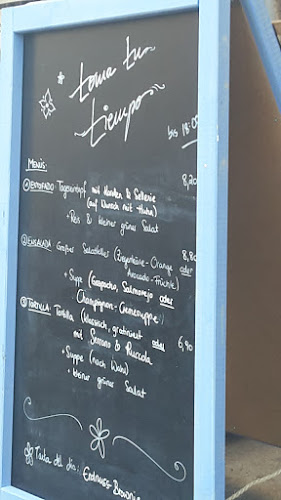 toma tu
tiempo
bis 18:00
MENÜS:
① ENTOFADO: Tageseintopf mit Karotten & Sellerie 8,20
(auf Wunsch mit Huhn)
+ Reis & kleiner grüner Salat
② ENSALADA: Großer Salatteller (Ziegenkäse-Orange oder 8,80
Avocado-Früchte)
+ Suppe (Gazpacho, Salmorejo oder
Champignon-Cremesuppe)
③ TORTILLA: Tortilla (klassisch, gratiniert oder 6,90
mit Serrano & Ruccola
+ Suppe (nach Wahl)
+ kleiner grüner Salat
Tarta del día: Erdnuss Brownie